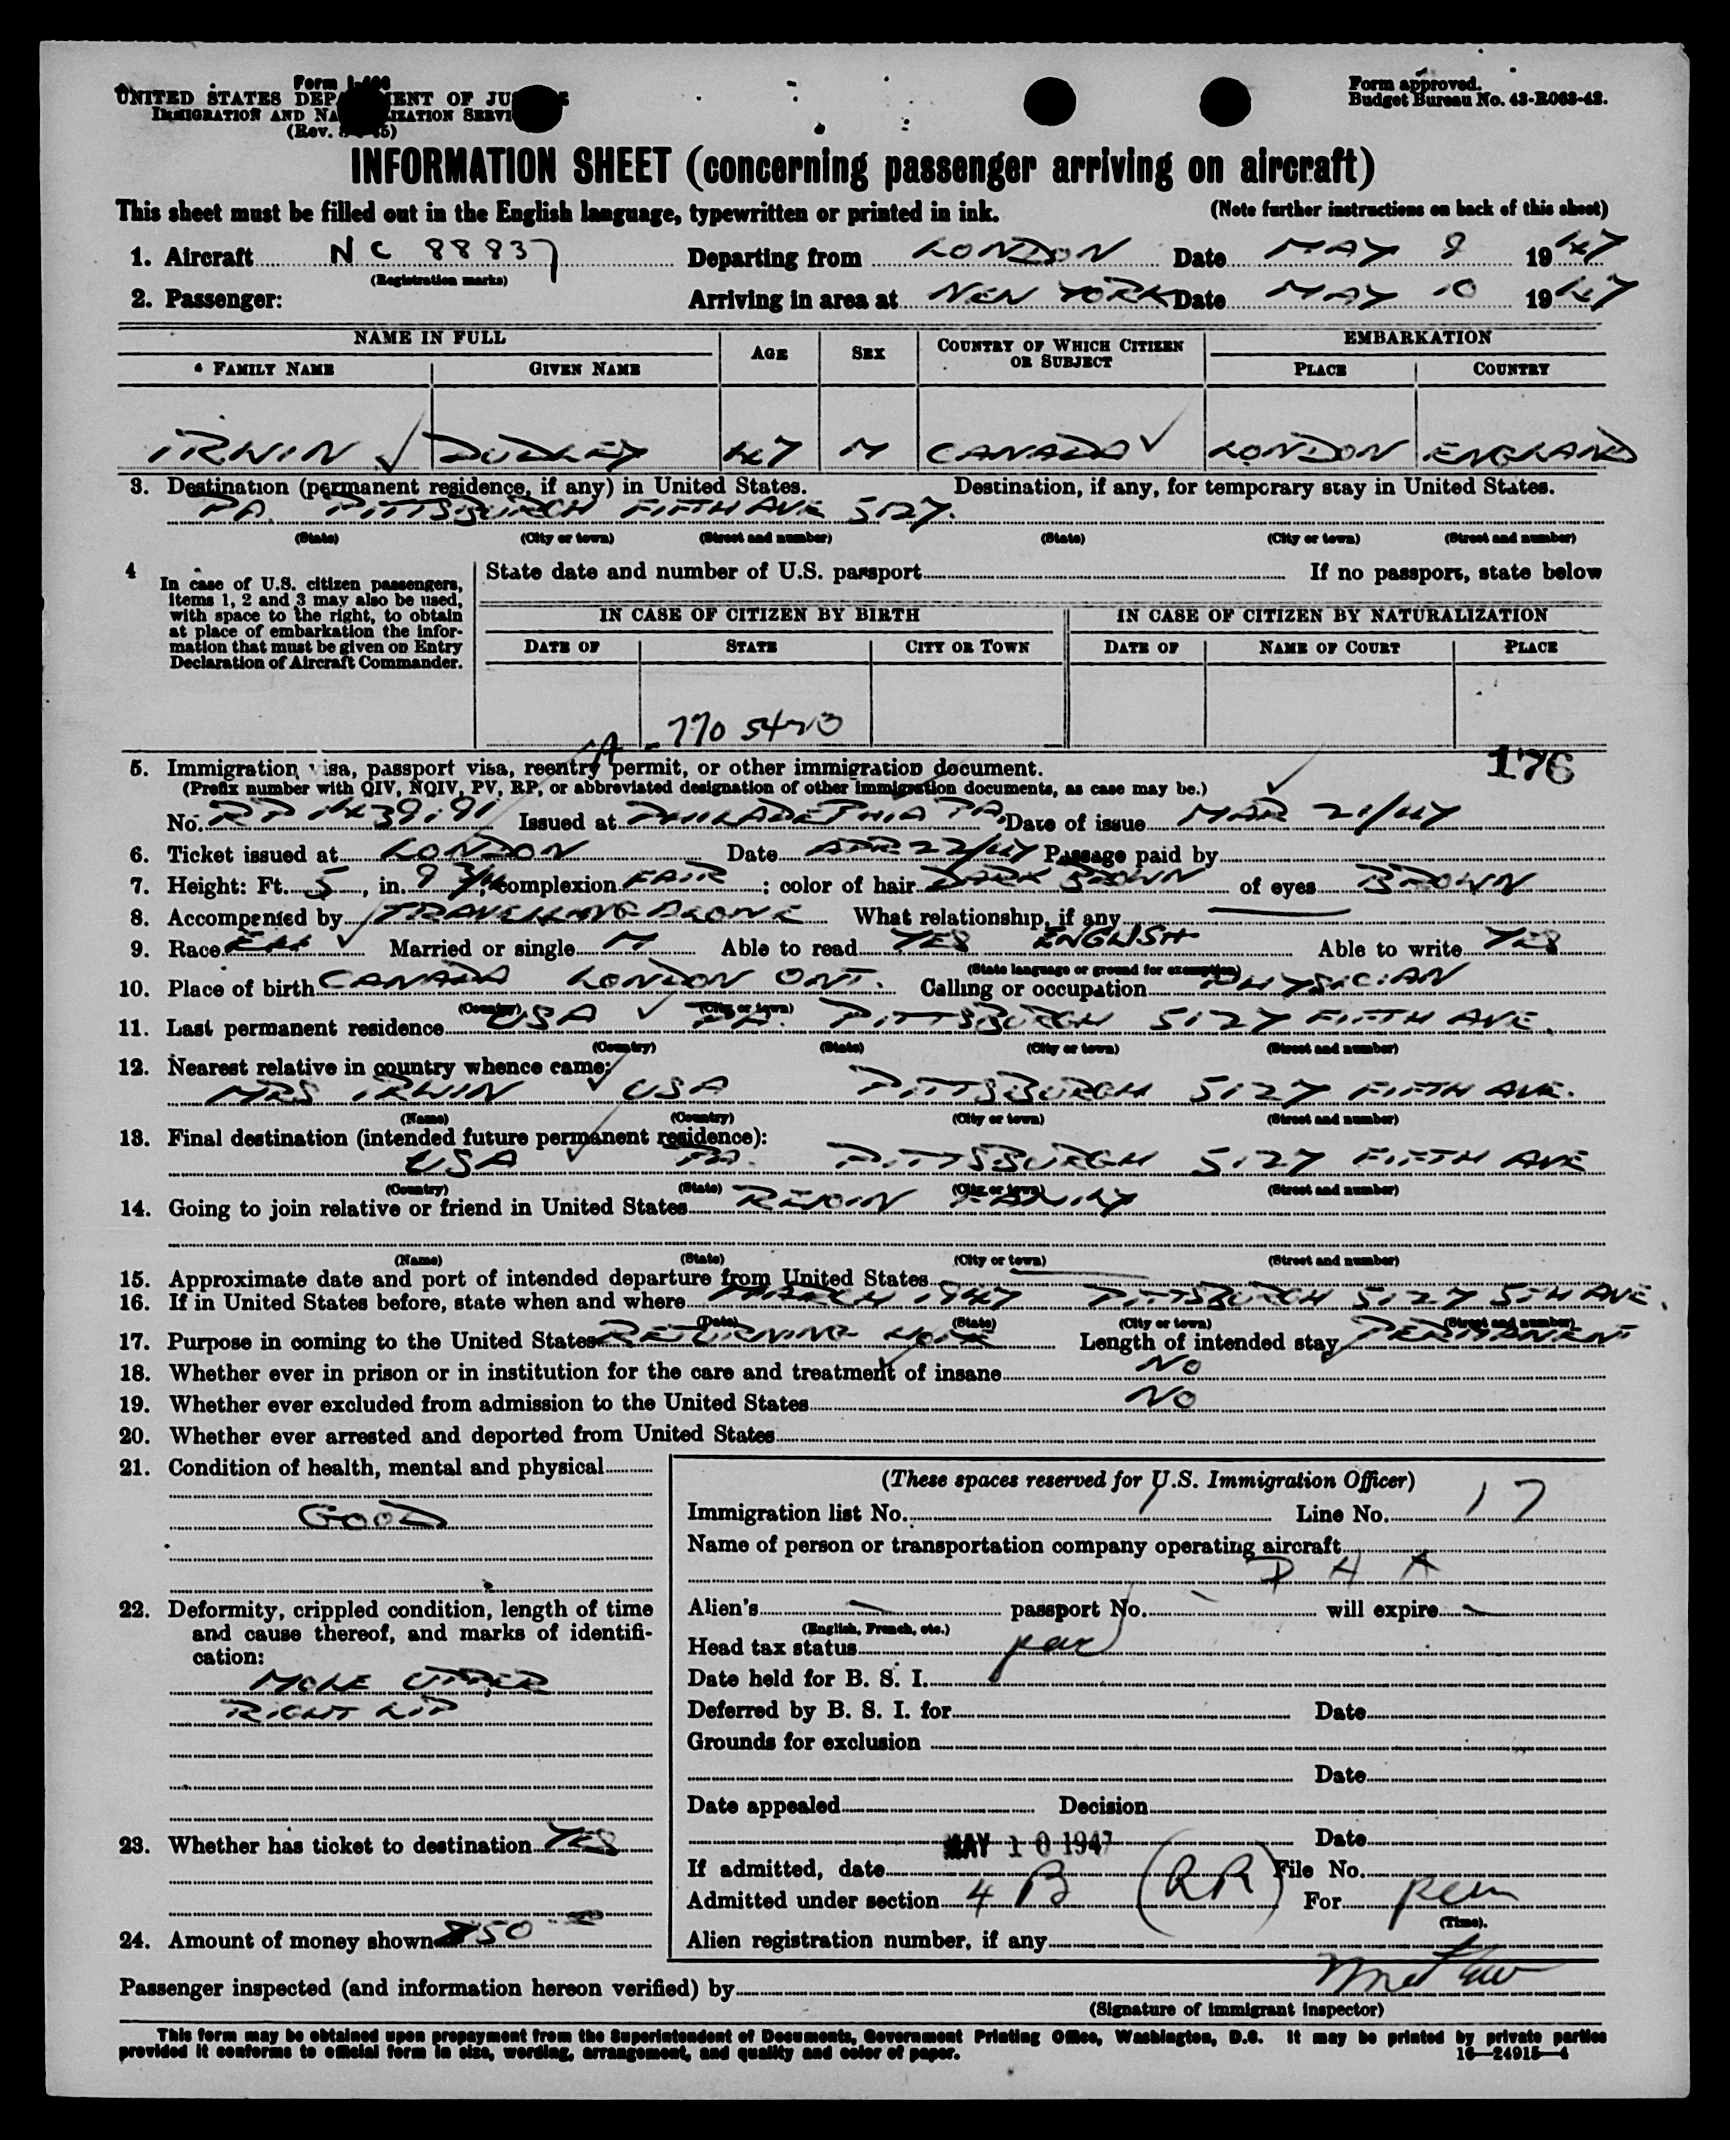 Form I-466
UNITED STATES DEPARTMENT OF JUSTICE
IMMIGRATION AND NATURALIZATION SERVICE
(Rev.
Form approved.
Budget Bureau No. 43-R063-42.
INFORMATION SHEET (concerning passenger arriving on aircraft)
This sheet must be filled out in the English language, typewritten or printed in ink. (Note further instructions on back of this sheet)
1. Aircraft NC 88837 Departing from LONDON Date MAY 9 1947
(Registration marks)
2. Passenger: Arriving in area at NEW YORK Date MAY 10 1947
NAME IN FULL AGE SEX COUNTRY OF WHICH CITIZEN OR SUBJECT EMBARKATION
FAMILY NAME GIVEN NAME PLACE COUNTRY
IRWIN ✓ DUDLEY 47 M CANADA ✓ LONDON ENGLAND
3. Destination (permanent residence, if any) in United States. Destination, if any, for temporary stay in United States.
PA. PITTSBURGH FIFTH AVE 5127.
(State) (City or town) (Street and number) (State) (City or town) (Street and number)
4 In case of U.S. citizen passengers,
items 1, 2 and 3 may also be used,
with space to the right, to obtain
at place of embarkation the infor-
mation that must be given on Entry
Declaration of Aircraft Commander.
State date and number of U.S. passport If no passport, state below
IN CASE OF CITIZEN BY BIRTH IN CASE OF CITIZEN BY NATURALIZATION
DATE OF STATE CITY OR TOWN DATE OF NAME OF COURT PLACE
176
5. Immigration visa, passport visa, reentry permit, or other immigration document.
(Prefix number with QIV, NQIV, PV, RP, or abbreviated designation of other immigration documents, as case may be.)
No. RP 1439191 Issued at PHILADELPHIA PA. Date of issue MAR 21/47
6. Ticket issued at LONDON Date APR 22/47 Passage paid by
7. Height: Ft. 5, in. 9 3/4; complexion FAIR; color of hair DARK BROWN of eyes BROWN
8. Accompanied by TRAVELLING ALONE What relationship, if any —
9. Race ✓ Married or single M Able to read YES ENGLISH Able to write YES
(State language or ground for exemption)
10. Place of birth CANADA LONDON ONT. Calling or occupation PHYSICIAN
(Country) (City or town)
11. Last permanent residence USA ✓ PA. PITTSBURGH 5127 FIFTH AVE.
(Country) (State) (City or town) (Street and number)
12. Nearest relative in country whence came:
MRS IRWIN ✓ USA PITTSBURGH 5127 FIFTH AVE.
(Name) (Country) (City or town) (Street and number)
13. Final destination (intended future permanent residence):
USA ✓ PA. PITTSBURGH 5127 FIFTH AVE
(Country) (State) (City or town) (Street and number)
14. Going to join relative or friend in United States REJOIN FAMILY
(Name) (State) (City or town) (Street and number)
15. Approximate date and port of intended departure from United States —
16. If in United States before, state when and where MARCH 1947 PITTSBURGH 5127 5TH AVE.
(Date) (State) (City or town) (Street and number)
17. Purpose in coming to the United States RETURNING HOME Length of intended stay PERMANENT
18. Whether ever in prison or in institution for the care and treatment of insane NO
19. Whether ever excluded from admission to the United States NO
20. Whether ever arrested and deported from United States
21. Condition of health, mental and physical
GOOD
22. Deformity, crippled condition, length of time
and cause thereof, and marks of identifi-
cation:
MOLE UPPER
RIGHT LIP
23. Whether has ticket to destination YES
24. Amount of money shown $50
(These spaces reserved for U.S. Immigration Officer)
Immigration list No. Line No. 17
Name of person or transportation company operating aircraft
Alien's — passport No. — will expire —
(English, French, etc.)
Head tax status
Date held for B. S. I.
Deferred by B. S. I. for Date
Grounds for exclusion
Date
Date appealed Decision
Date
If admitted, date MAY 10 1947 File No.
Admitted under section 4 B (RR) For perm
(Time).
Alien registration number, if any
Passenger inspected (and information hereon verified) by
(Signature of immigrant inspector)
This form may be obtained upon prepayment from the Superintendent of Documents, Government Printing Office, Washington, D.C. It may be printed by private parties
provided it conforms to official form in size, wording, arrangement, and quality and color of paper. 16—24915-4